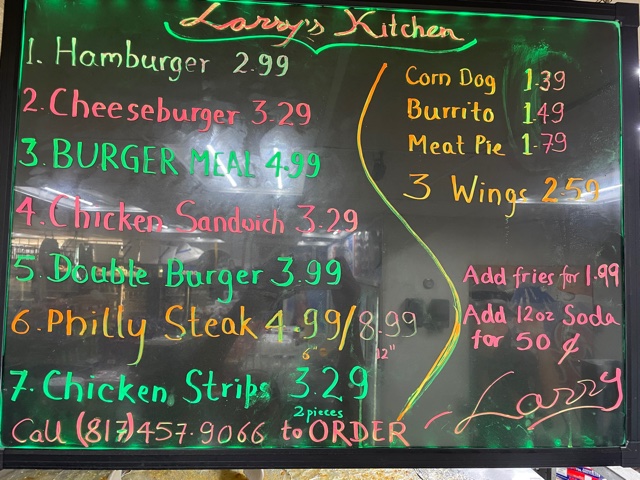 Larry's Kitchen
1. Hamburger 2.99
2. Cheeseburger 3.29
3. BURGER MEAL 4.99
4. Chicken Sandwich 3.29
5. Double Burger 3.99
6. Philly Steak 4.99/8.99
6" 12"
7. Chicken Strips 3.29
2 pieces
Call (817)457.9066 to ORDER
Corn Dog 1.39
Burrito 1.49
Meat Pie 1.79
3 Wings 2.59
Add fries for 1.99
Add 12oz Soda
for 50 ¢
- Larry